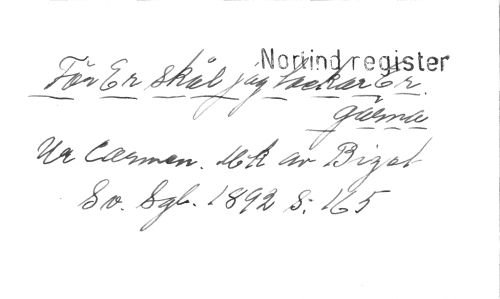 Norlind register
För Er skål jag tackar Er
gärna
Ur Carmen. Mk av Bizet
Sv. Sgb. 1892 S: 165